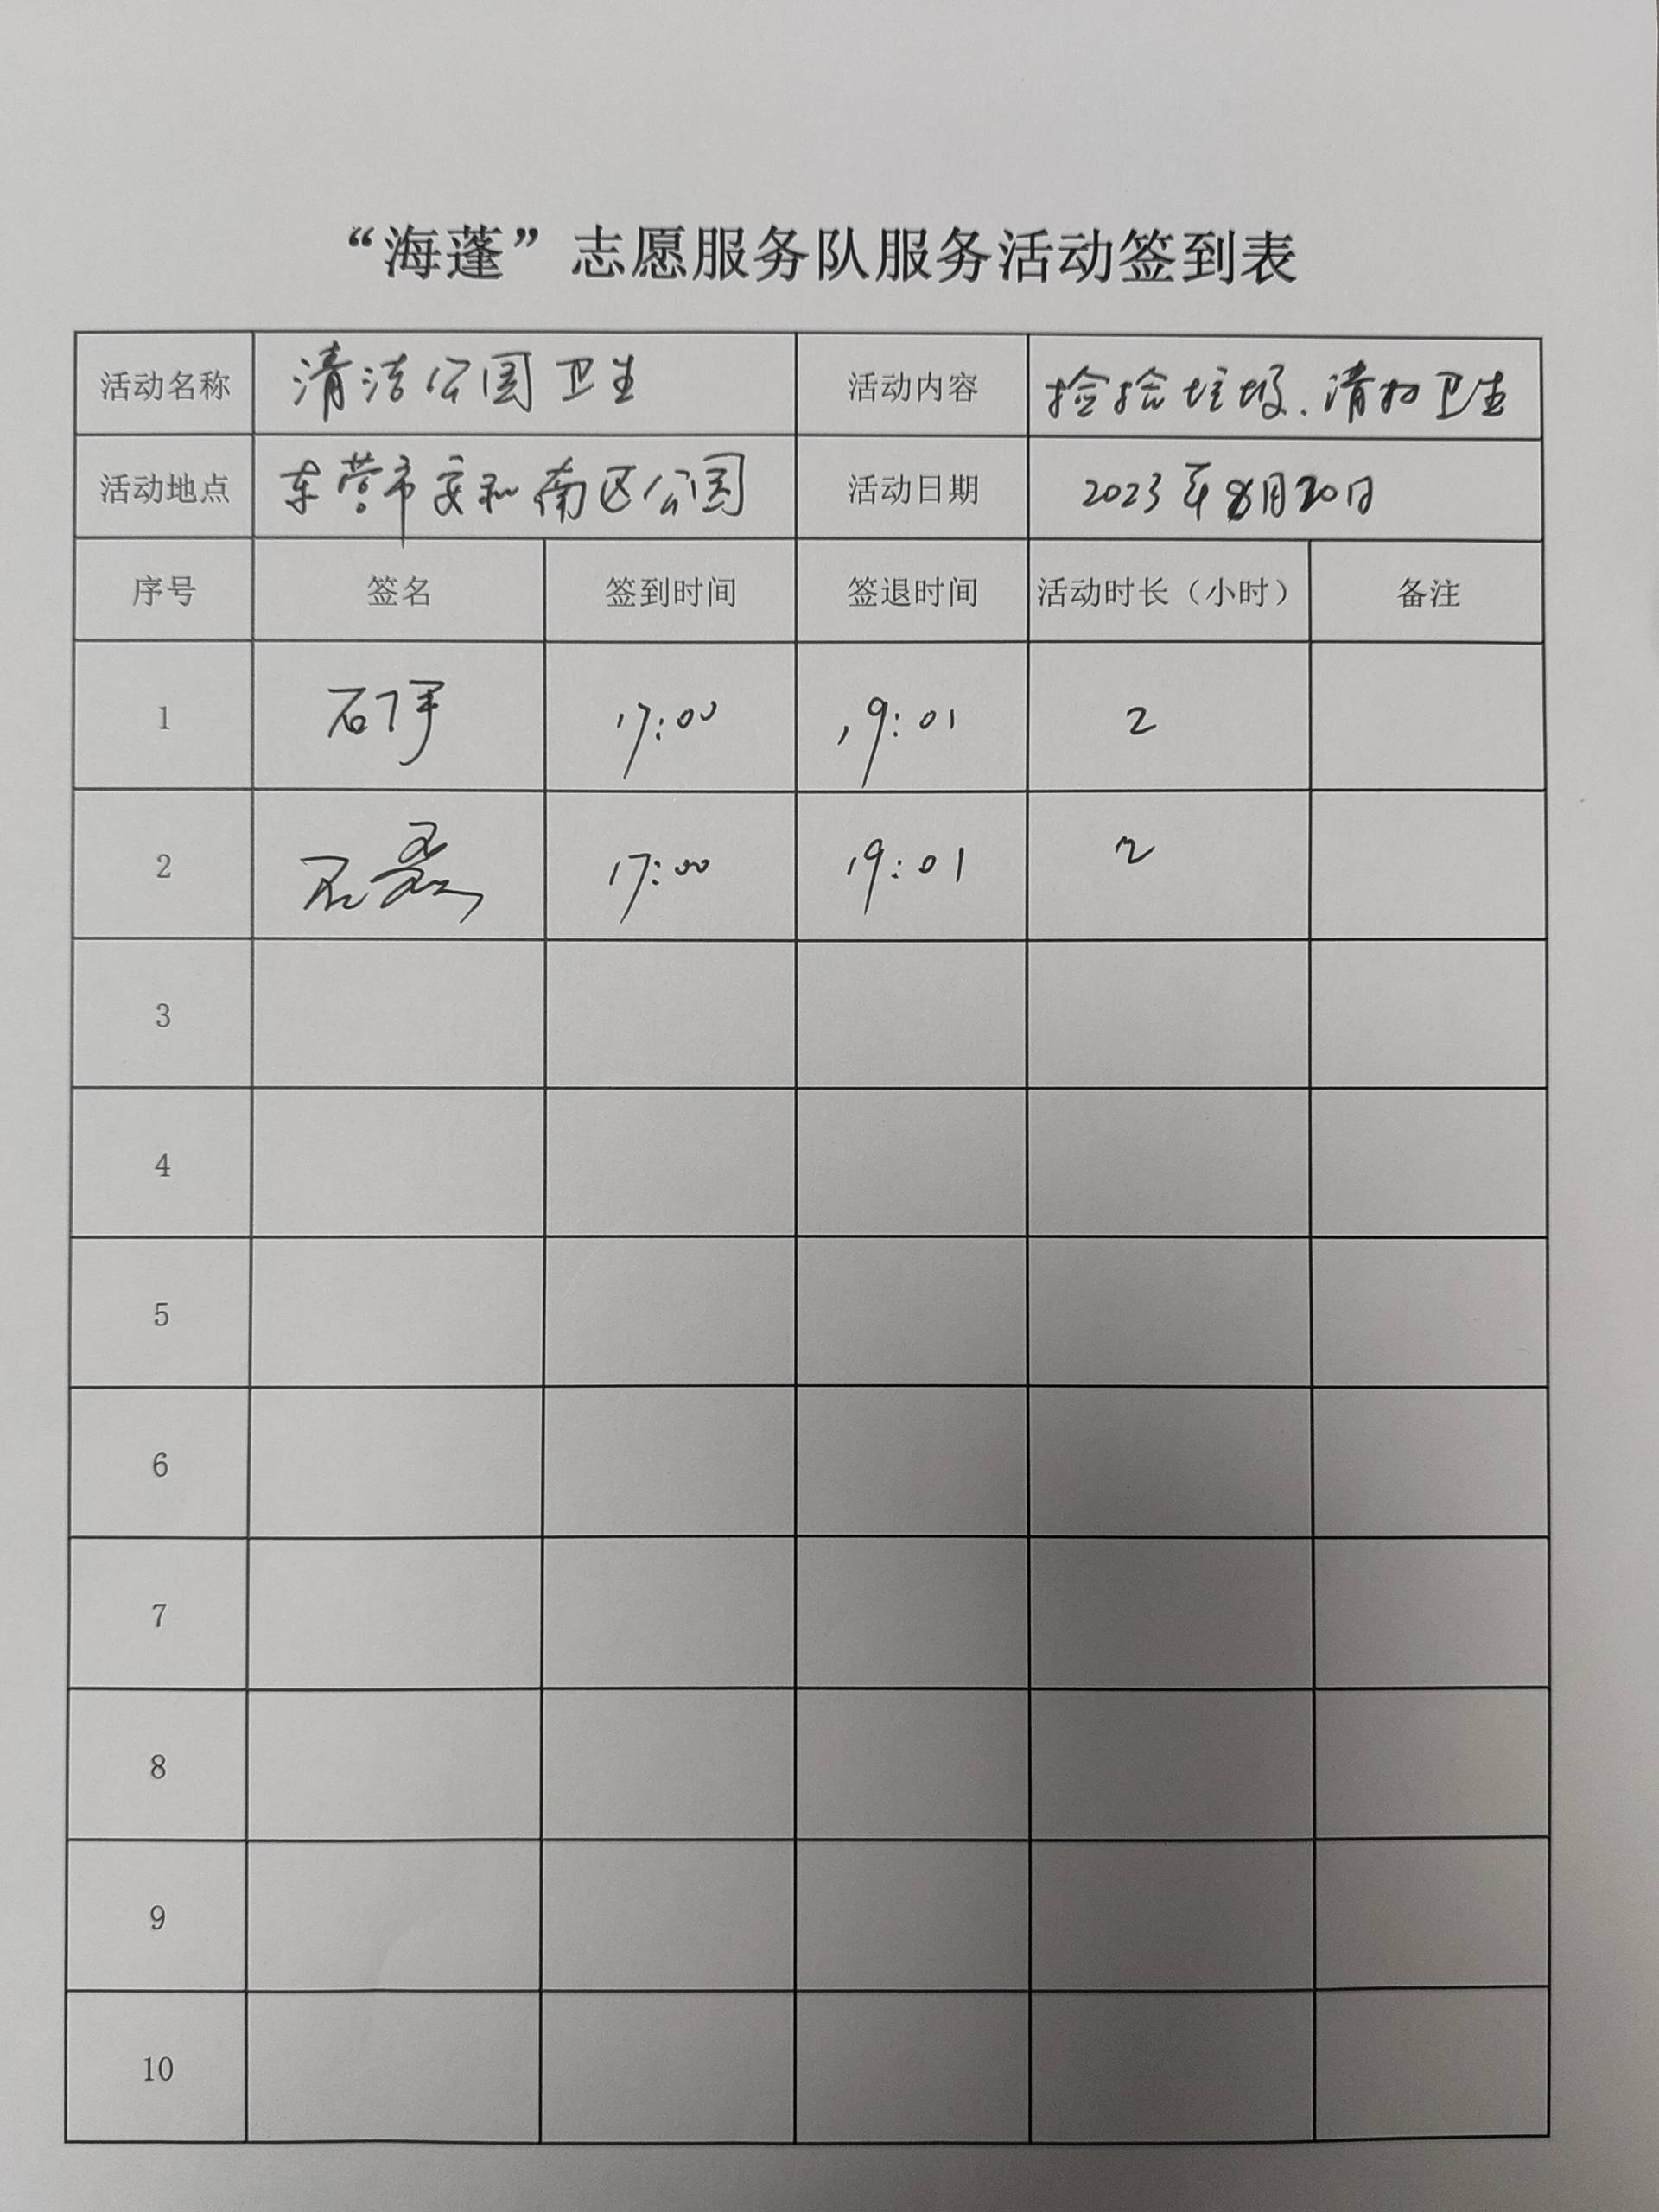 “海蓬”志愿服务队服务活动签到表
活动名称 清洁公园卫生 活动内容 捡捡垃圾、清扫卫生
活动地点 东营市安和南区公园 活动日期 2023年8月20日
序号 签名 签到时间 签退时间 活动时长（小时） 备注
1 石 17:00 19:01 2
2 石磊 17:00 19:01 2
3
4
5
6
7
8
9
10